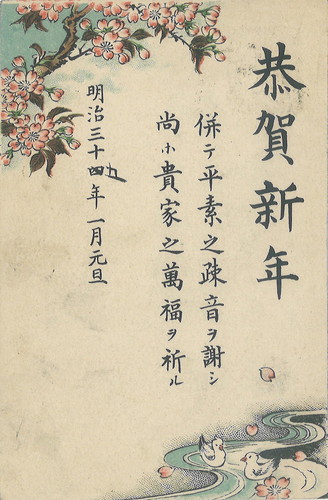 恭賀新年
併テ平素之疎音ヲ謝シ
尚ホ貴家之萬福ヲ祈ル
明治三十四九年一月元旦